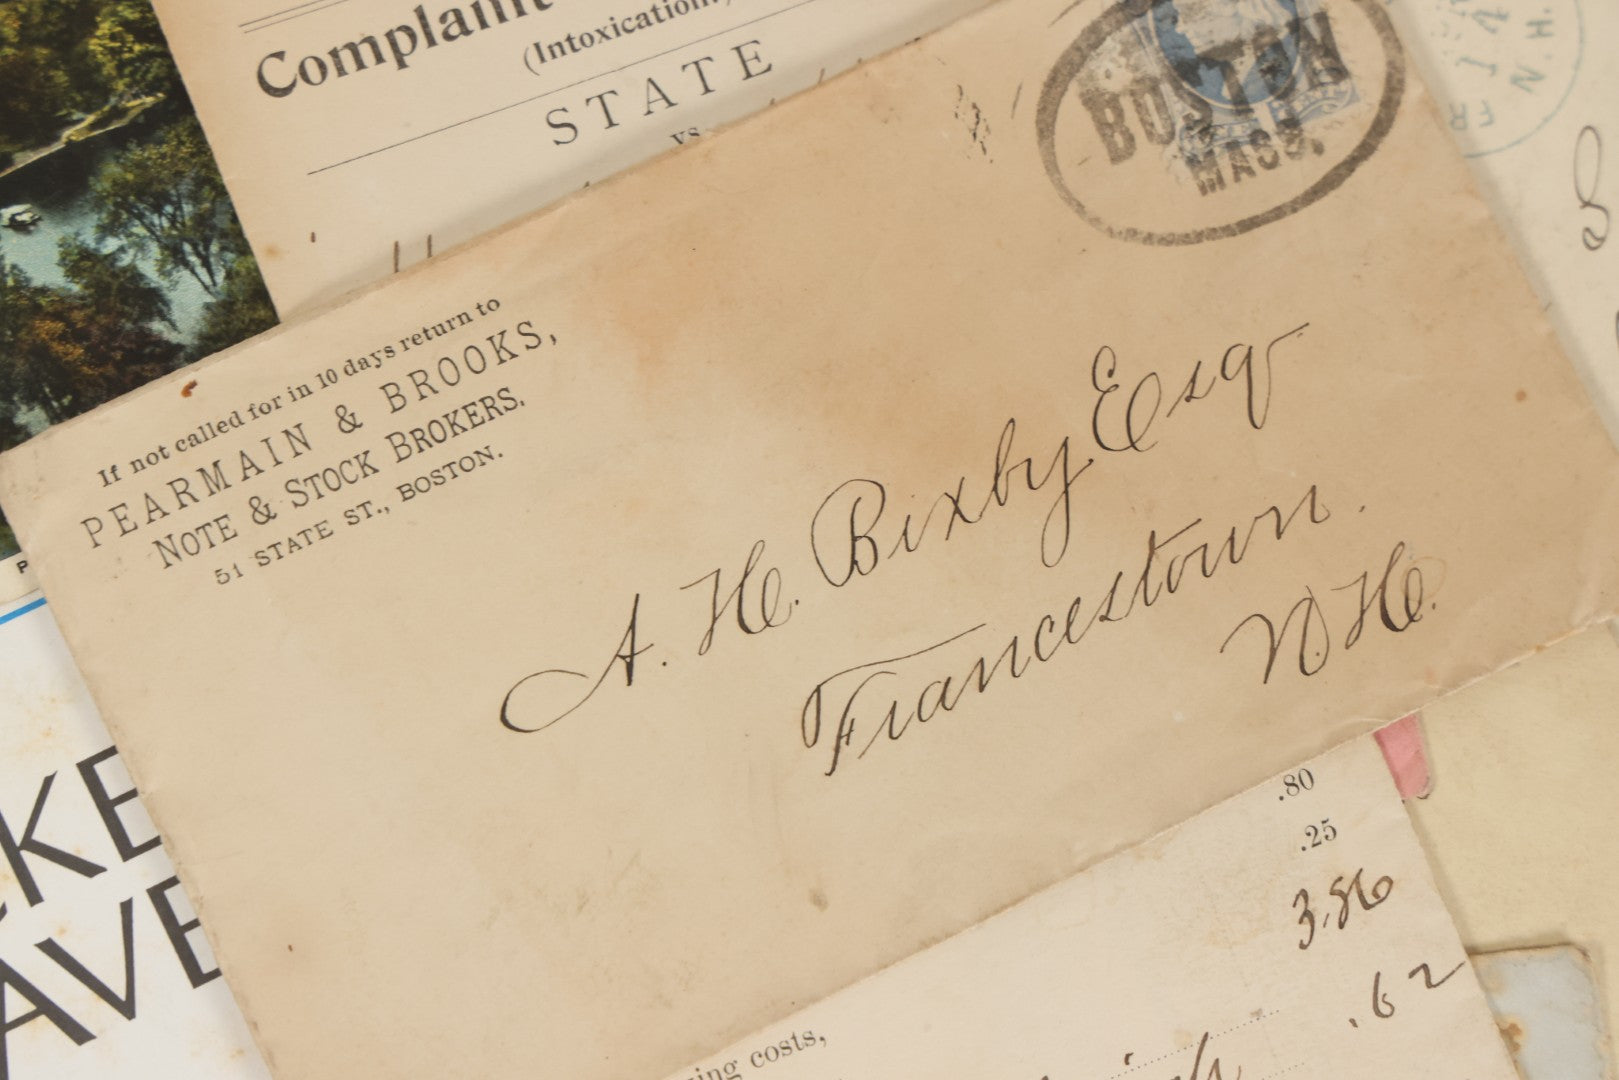 Complaint
(Intoxication.)
STATE
vs.
BOSTON
MASS.
N.H.
If not called for in 10 days return to
PEARMAIN & BROOKS,
NOTE & STOCK BROKERS.
51 STATE ST., BOSTON.
A. H. Bixby Esq
Francestown.
N. H.
KE
AVE
.80
.25
3.86
.62
costs,